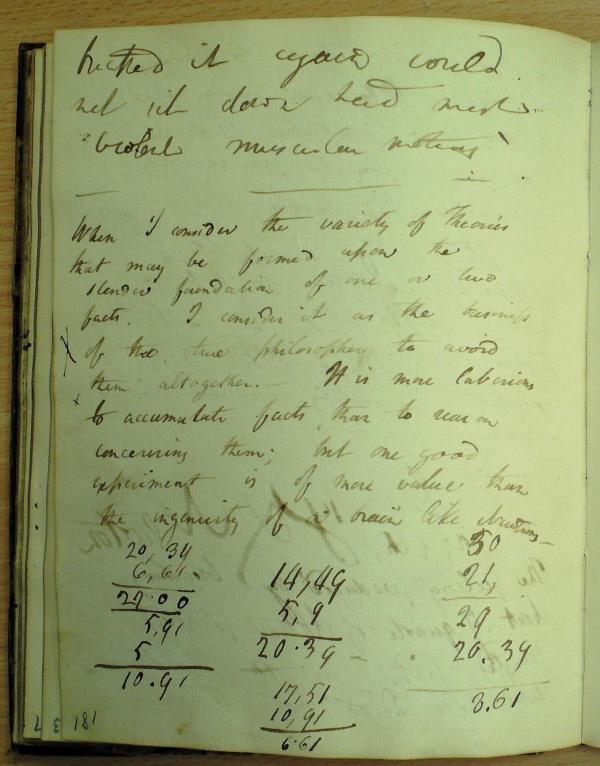 it again could
not it down had most
muscular motions
When I consider the variety of Theories
that may be formed upon the
slender foundation of one or two
facts. I consider it as the business
X of the true philosopher to avoid
them altogether. — It is more laborious
x to accumulate facts than to reason
concerning them; but one good
experiment is of more value than
the ingenuity of a brain like Newtons
20,34
6,61
27.00
5,91
5
10.91
14,49
5,9
20.39 –
17,51
10,91
6.61
50
21,
29
20.39
8.61
181